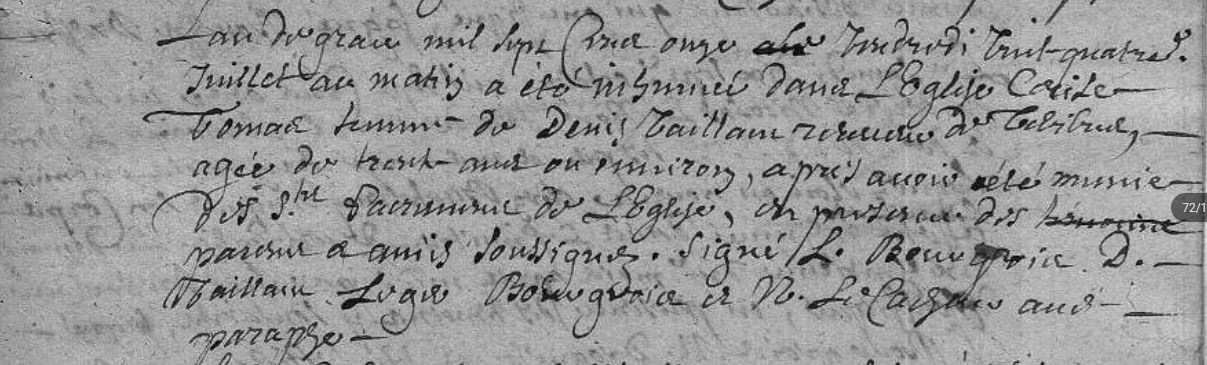 Lan de grace mil sept Cens onze le Vendredi vint quatre.e
Juillet au matin a été inhumée dans L'Eglise Cecile
Tomas femme de Denis Vaillant receveur de
agée de trente ans ou environ, apres avoir été munie
des S.ts Sacremens de L'Eglise, en presence des temoins
parens & amis soussignes. Signé L. Bourgeois D.
Vaillant. Bourgeois et N. avec
paraphe
72/1